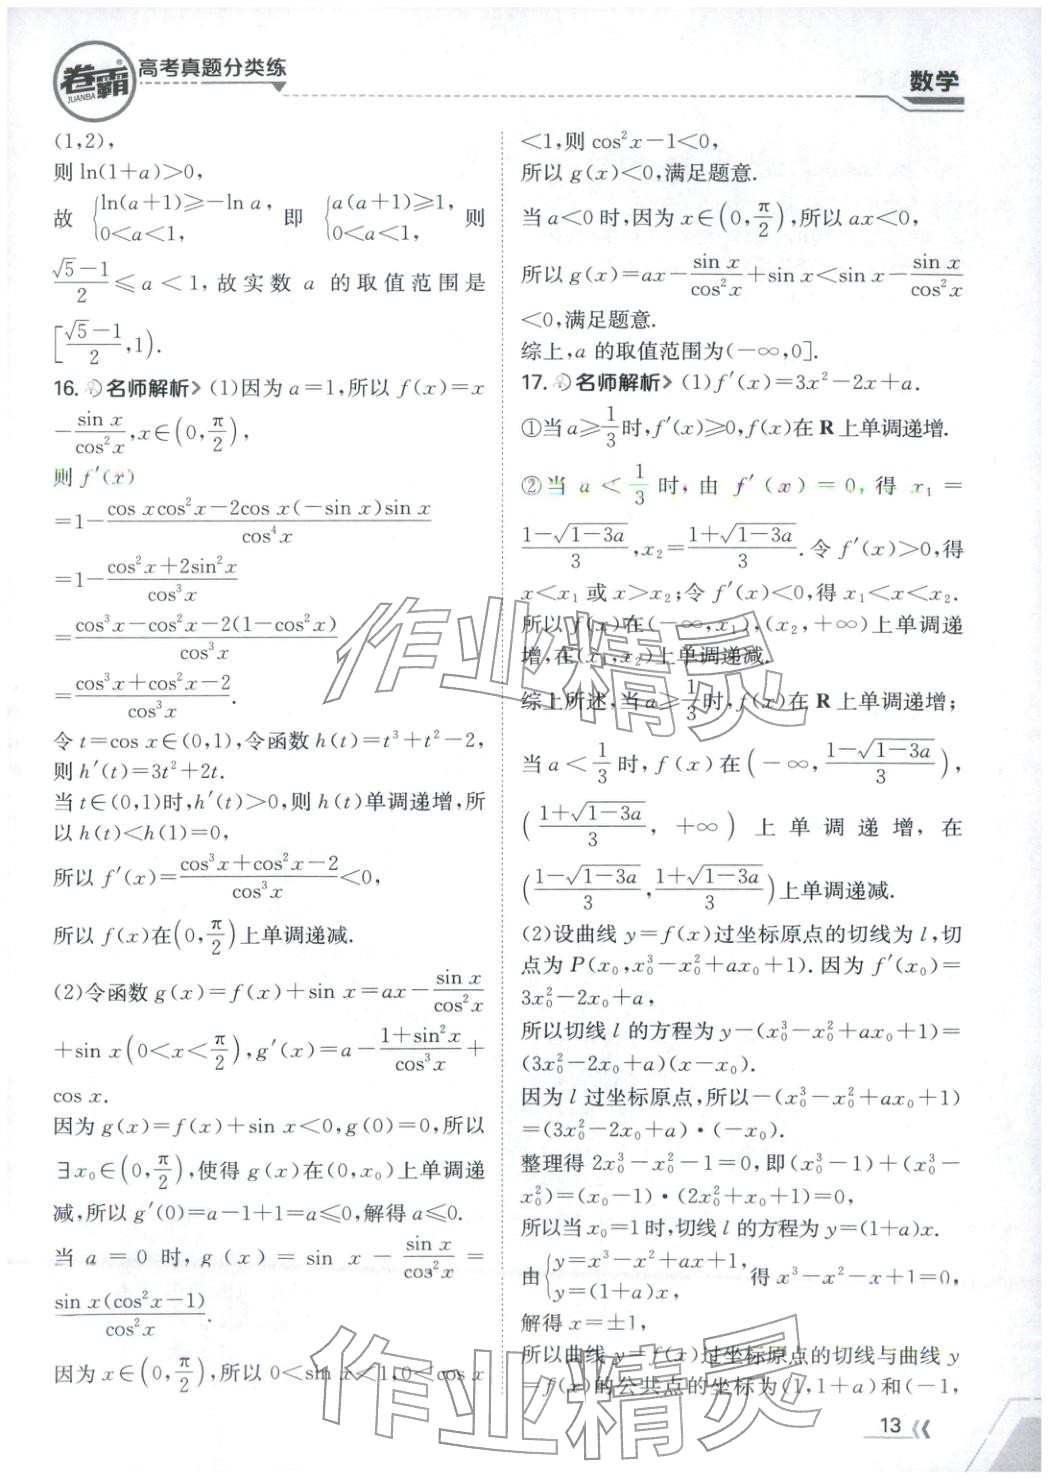 卷霸
JUANBA
高考真题分类练
数学
(1,2),
则 ln(1+a)>0,
故 {ln(a+1)≥-ln a, 0<a<1, 即 {a(a+1)≥1, 0<a<1, 则
(√5-1)/2 ≤a<1,故实数 a 的取值范围是
[(√5-1)/2,1).
16. 名师解析> (1)因为 a=1,所以 f(x)=x
-sin x/cos²x,x∈(0,π/2),
则 f′(x)
=1-(cos xcos²x-2cos x(-sin x)sin x)/cos⁴x
=1-(cos²x+2sin²x)/cos³x
=(cos³x-cos²x-2(1-cos²x))/cos³x
=(cos³x+cos²x-2)/cos³x.
令 t=cos x∈(0,1),令函数 h(t)=t³+t²-2,
则 h′(t)=3t²+2t.
当 t∈(0,1)时,h′(t)>0,则 h(t)单调递增,所
以 h(t)<h(1)=0,
所以 f′(x)=(cos³x+cos²x-2)/cos³x<0,
所以 f(x)在(0,π/2)上单调递减.
(2)令函数 g(x)=f(x)+sin x=ax-sin x/cos²x
+sin x(0<x<π/2),g′(x)=a-(1+sin²x)/cos³x+
cos x.
因为 g(x)=f(x)+sin x<0,g(0)=0,所以
∃x₀∈(0,π/2),使得 g(x)在(0,x₀)上单调递
减,所以 g′(0)=a-1+1=a≤0,解得 a≤0.
当 a=0 时,g(x)=sin x-sin x/cos²x=
sin x(cos²x-1)/cos²x.
因为 x∈(0,π/2),所以 0<sin x<1,0<cos x
<1,则 cos²x-1<0,
所以 g(x)<0,满足题意.
当 a<0 时,因为 x∈(0,π/2),所以 ax<0,
所以 g(x)=ax-sin x/cos²x+sin x<sin x-sin x/cos²x
<0,满足题意.
综上,a 的取值范围为(-∞,0].
17. 名师解析> (1)f′(x)=3x²-2x+a.
①当 a≥1/3时,f′(x)≥0,f(x)在 R 上单调递增.
②当 a<1/3 时,由 f′(x)=0,得 x₁=
(1-√(1-3a))/3,x₂=(1+√(1-3a))/3.令 f′(x)>0,得
x<x₁ 或 x>x₂;令 f′(x)<0,得 x₁<x<x₂.
所以 f(x)在(-∞,x₁),(x₂,+∞)上单调递
增,在(x₁,x₂)上单调递减.
综上所述,当 a≥1/3时,f(x)在 R 上单调递增;
当 a<1/3 时,f(x)在(-∞,(1-√(1-3a))/3),
((1+√(1-3a))/3,+∞)上单调递增,在
((1-√(1-3a))/3,(1+√(1-3a))/3)上单调递减.
(2)设曲线 y=f(x)过坐标原点的切线为 l,切
点为 P(x₀,x₀³-x₀²+ax₀+1).因为 f′(x₀)=
3x₀²-2x₀+a,
所以切线 l 的方程为 y-(x₀³-x₀²+ax₀+1)=
(3x₀²-2x₀+a)(x-x₀).
因为 l 过坐标原点,所以-(x₀³-x₀²+ax₀+1)
=(3x₀²-2x₀+a)·(-x₀).
整理得 2x₀³-x₀²-1=0,即(x₀³-1)+(x₀³-
x₀²)=(x₀-1)·(2x₀²+x₀+1)=0,
所以当 x₀=1 时,切线 l 的方程为 y=(1+a)x.
由{y=x³-x²+ax+1, y=(1+a)x, 得 x³-x²-x+1=0,
解得 x=±1,
所以曲线 y=f(x)过坐标原点的切线与曲线 y
=f(x)的公共点的坐标为(1,1+a)和(-1,
13
作业精灵
作业精灵